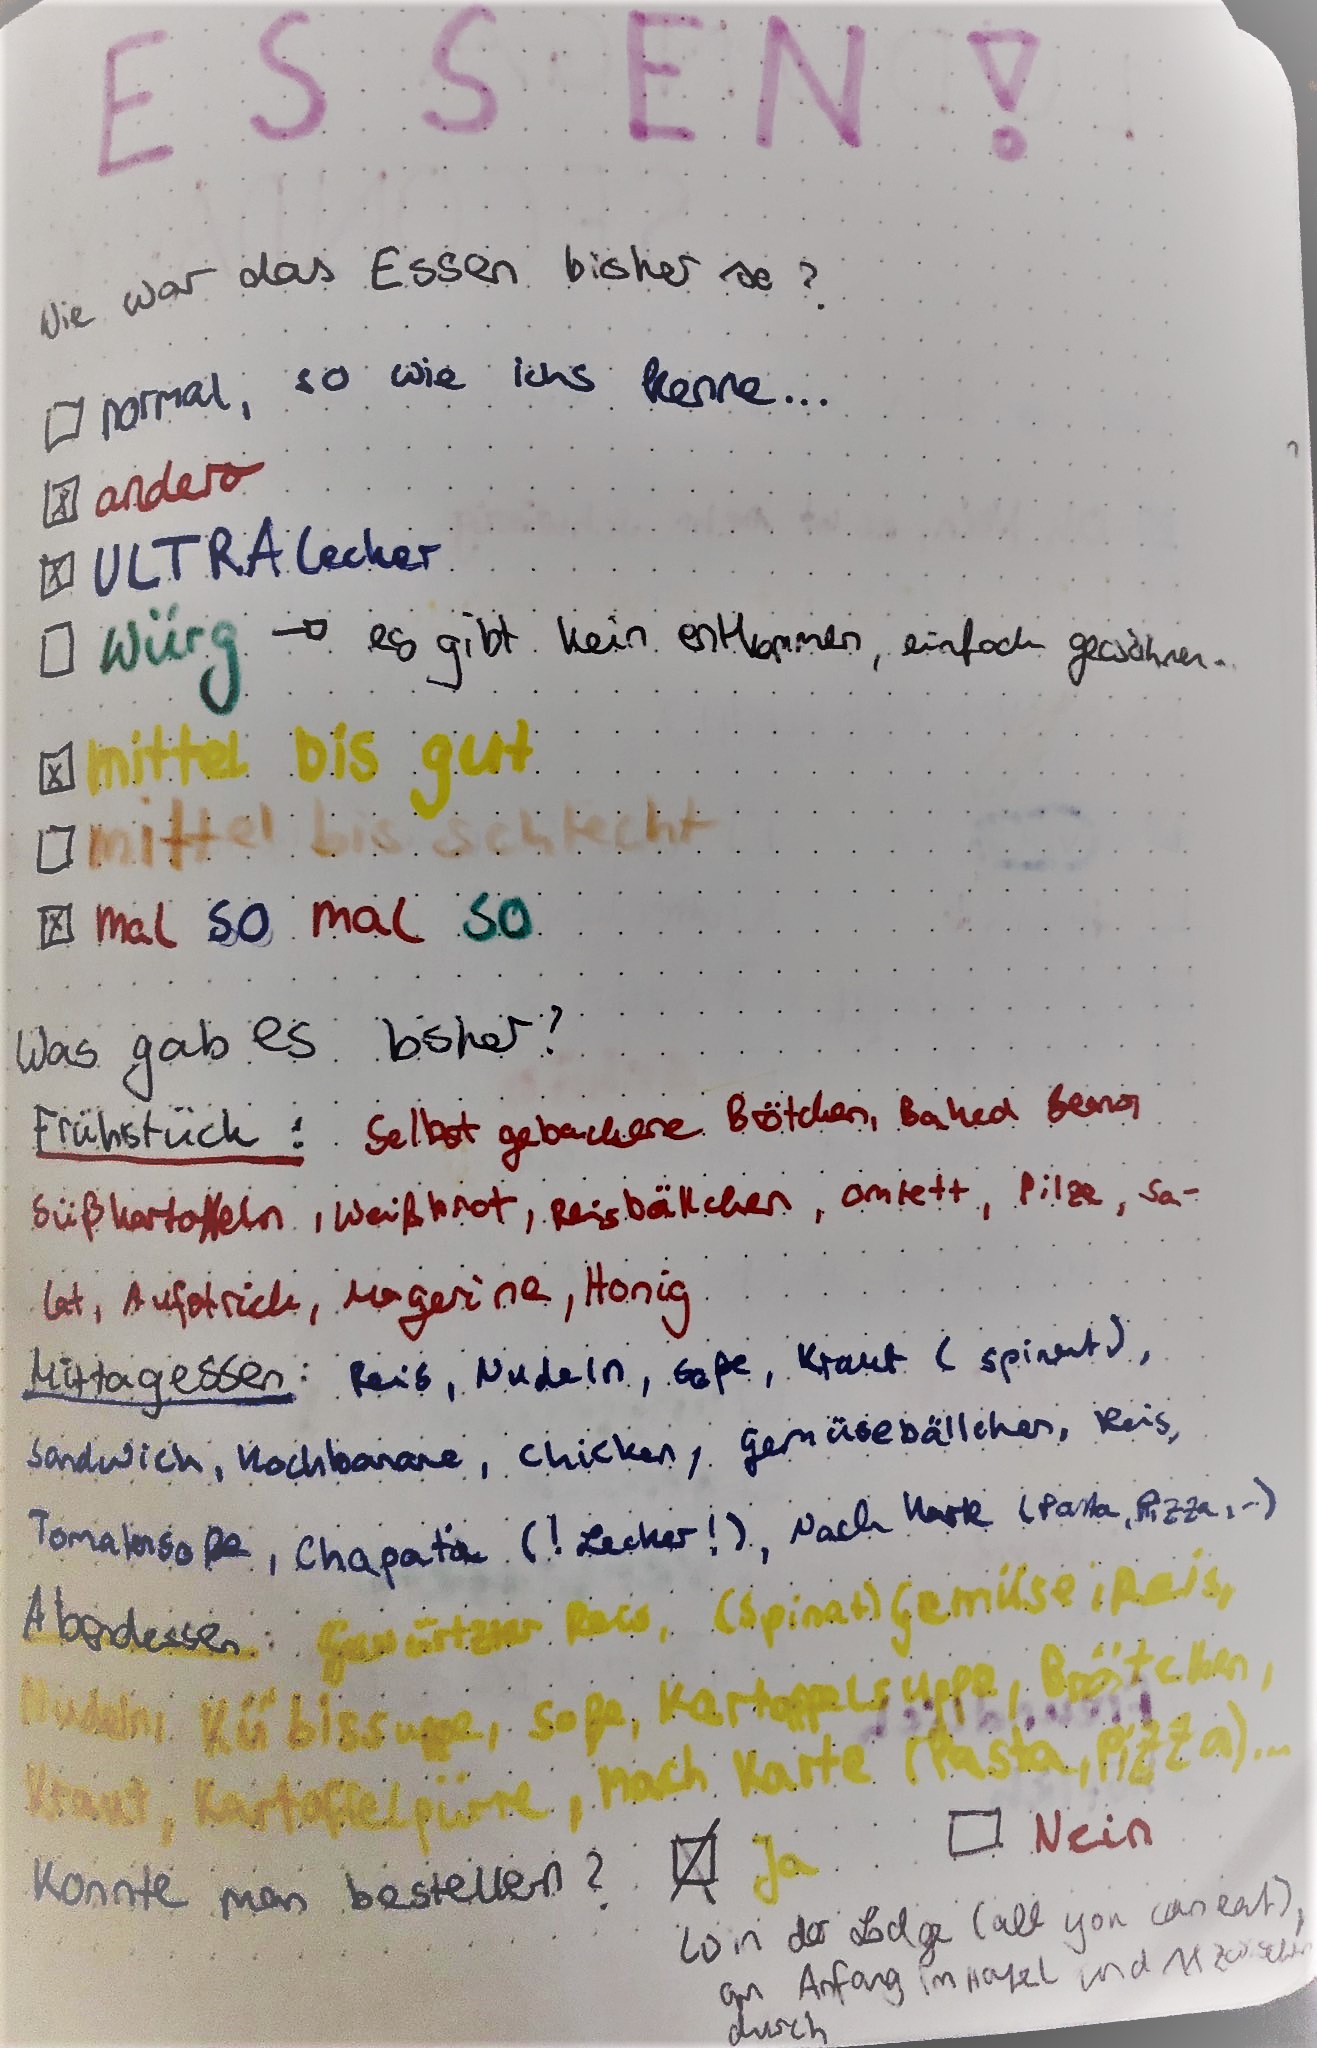 ESSEN!
Wie war das Essen bisher so?
normal, so wie ichs kenne...
anders
ULTRA lecker
Würg → es gibt kein entkommen, einfach gewöhnen..
mittel bis gut
mittel bis schlecht
mal so mal so
Was gab es bsher?
Frühstück: Selbst gebackene Brötchen, Baked Beans
Süßkartoffeln, Weißbrot, Reisbällchen, Omlett, Pilze, Sa-
lat, Aufstrich, Magerine, Honig
Mittagessen: Reis, Nudeln, Soße, Kraut (Spinat),
Sandwich, Kochbanane, Chicken, Gemüsebällchen, Reis,
Tomatensoße, Chapatia (! Lecker!), Nach Karte (Pasta, Pizza, ..)
Abendessen: Gewürtzter Reis, (Spinat) Gemüse, Reis,
Nudeln, Kübissuppe, Soße, Kartoffelsuppe, Brötchen,
Kraut, Kartoffelpürre, Nach Karte (Pasta, Pizza)...
Konnte man bestellen? Ja Nein
in der Lodge (all you can eat),
am Anfang im Hotel und zwischen
durch